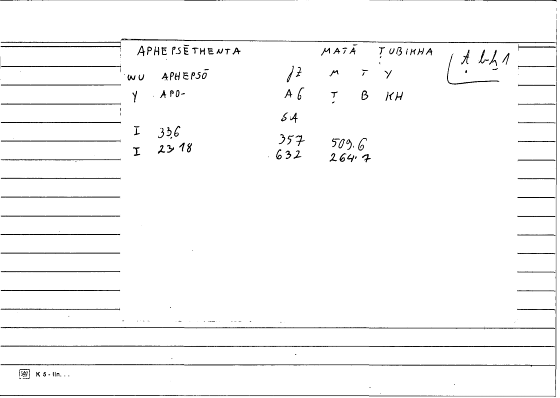 APHEPSĒTHENTA MATĀ ṬUBIKHA ṭ b-ḫ 1
WU APHEPSŌ fZ M T Y
Y APO- A6 Ṭ B KH
6A
I 33,6 357 509.6
I 23.18 632 264.7
K 5 - lin. . .